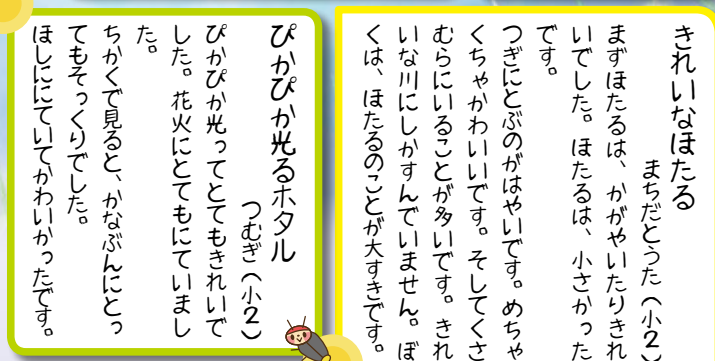 きれいなほたる
まちだとうた(小2)
まずほたるは、かがやいたりきれ
いでした。ほたるは、小さかった
です。
つぎにとぶのがはやいです。めちゃ
くちゃかわいいです。そしてくさ
むらにいることが多いです。きれ
いな川にしかすんでいません。ぼ
くは、ほたるのことが大すきです。
ぴかぴか光るホタル
つむぎ(小2)
ぴかぴか光ってとてもきれいで
した。花火にとてもにていまし
た。
ちかくで見ると、かなぶんにとっ
てもそっくりでした。
ほしににていてかわいかったです。